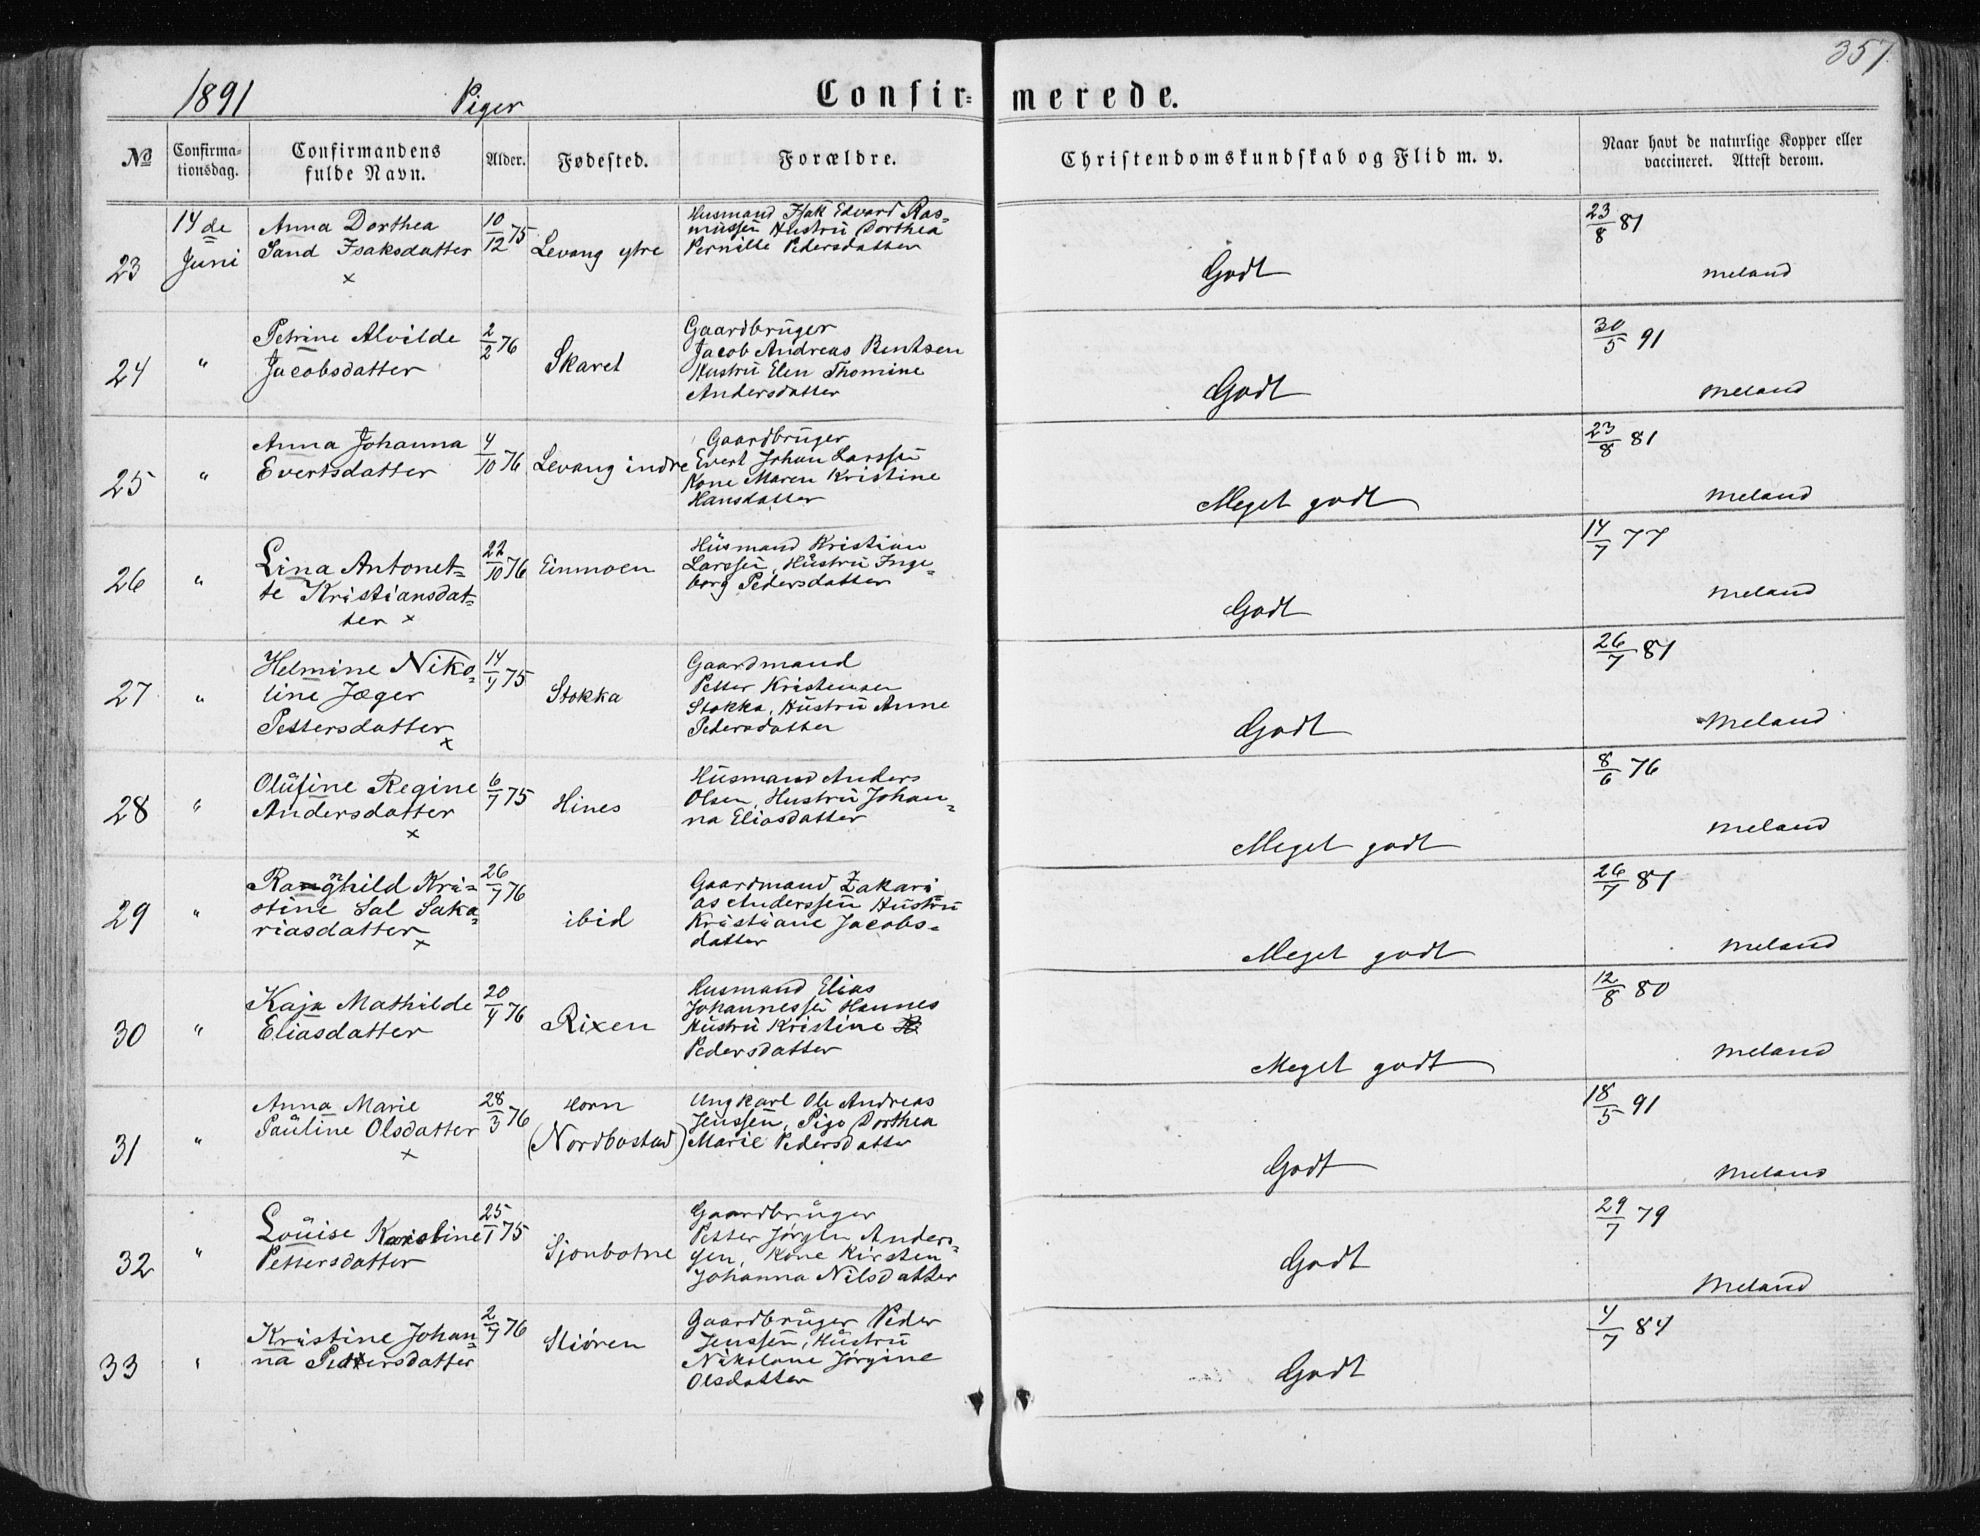 357
1891 Piger Confir= merede.
No
Confirma-
tionsdag.
Confirmandens
fulde Navn.
Alder.
Fødested.
Forældre.
Christendomskundskab og Flid m. v.
Naar havt de naturlige Kopper eller
vaccineret. Attest derom.
23
14de
Juni
Anna Dorthea
Sand Isaksdatter
x
10/12 75
Levang ytre
Husmand Isak Edvard Ras=
mussen Hustru Dorthea
Pernille Pedersdatter
Godt
23/8 81
Meland
24
"
Petrine Alvilde
Jacobsdatter
2/2 76
Skaret
Gaardbruger
Jacob Andreas Bentsen
Hustru Elen Thomine
Andersdatter
Godt
30/5 91
Meland
25
"
Anna Johanna
Evertsdatter
4/10 76
Levang indre
Gaardbruger
Evert Johan Larssen
Kone Maren Kristine
Hansdatter
Meget godt
23/8 81
Meland
26
"
Lina Antonet=
te Kristiansdat=
ter x
22/10 76
Einmoen
Husmand Kristian
Larssen, Hustru Inge=
borg Pedersdatter
Godt
14/7 77
Meland
27
"
Helmine Niko=
line Jæger
Pettersdatter
x
14/9 75
Stokka
Gaardmand
Petter Kristensen
Stokka, Hustru Anne
Pedersdatter
Godt
26/7 81
Meland
28
"
Olufine Regine
Andersdatter
x
6/7 75
Hines
Husmand Anders
Olsen, Hustru Johan=
na Eliasdatter
Meget godt
8/6 76
Meland
29
"
Rangnhild Kri=
stine Sal Saka=
riasdatter
x
26/7 76
ibid
Gaardmand Zakari=
as Anderssen Hustru
Kristiane Jacobs=
datter
Meget godt
26/7 81
Meland
30
"
Kaja Mathilde
Eliasdatter
20/4 76
Rixen
Husmand Elias
Johannessen Hannes
Hustru Kristine
Pedersdatter
Meget godt
12/8 80
Meland
31
"
Anna Marie
Pauline Olsdatter
x
28/3 76
Horn
(Nordbostad)
Ungkarl Ole Andreas
Jenssen, Pige Dorthea
Marie Pedersdatter
Godt
18/5 91
Meland
32
"
Louise Karistine
Pettersdatter
25/1 75
Sjonbotne
Gaardbruger
Petter Jørgen Anders=
sen, Kone Kirsten
Johanna Nilsdatter
Godt
29/7 79
Meland
33
"
Kristine Johan=
na Pettersdatter
2/9 76
Stiøren
Gaardbruger Peder
Jenssen, Hustru
Nikoline Jørgine
Olsdatter
Godt
4/7 84